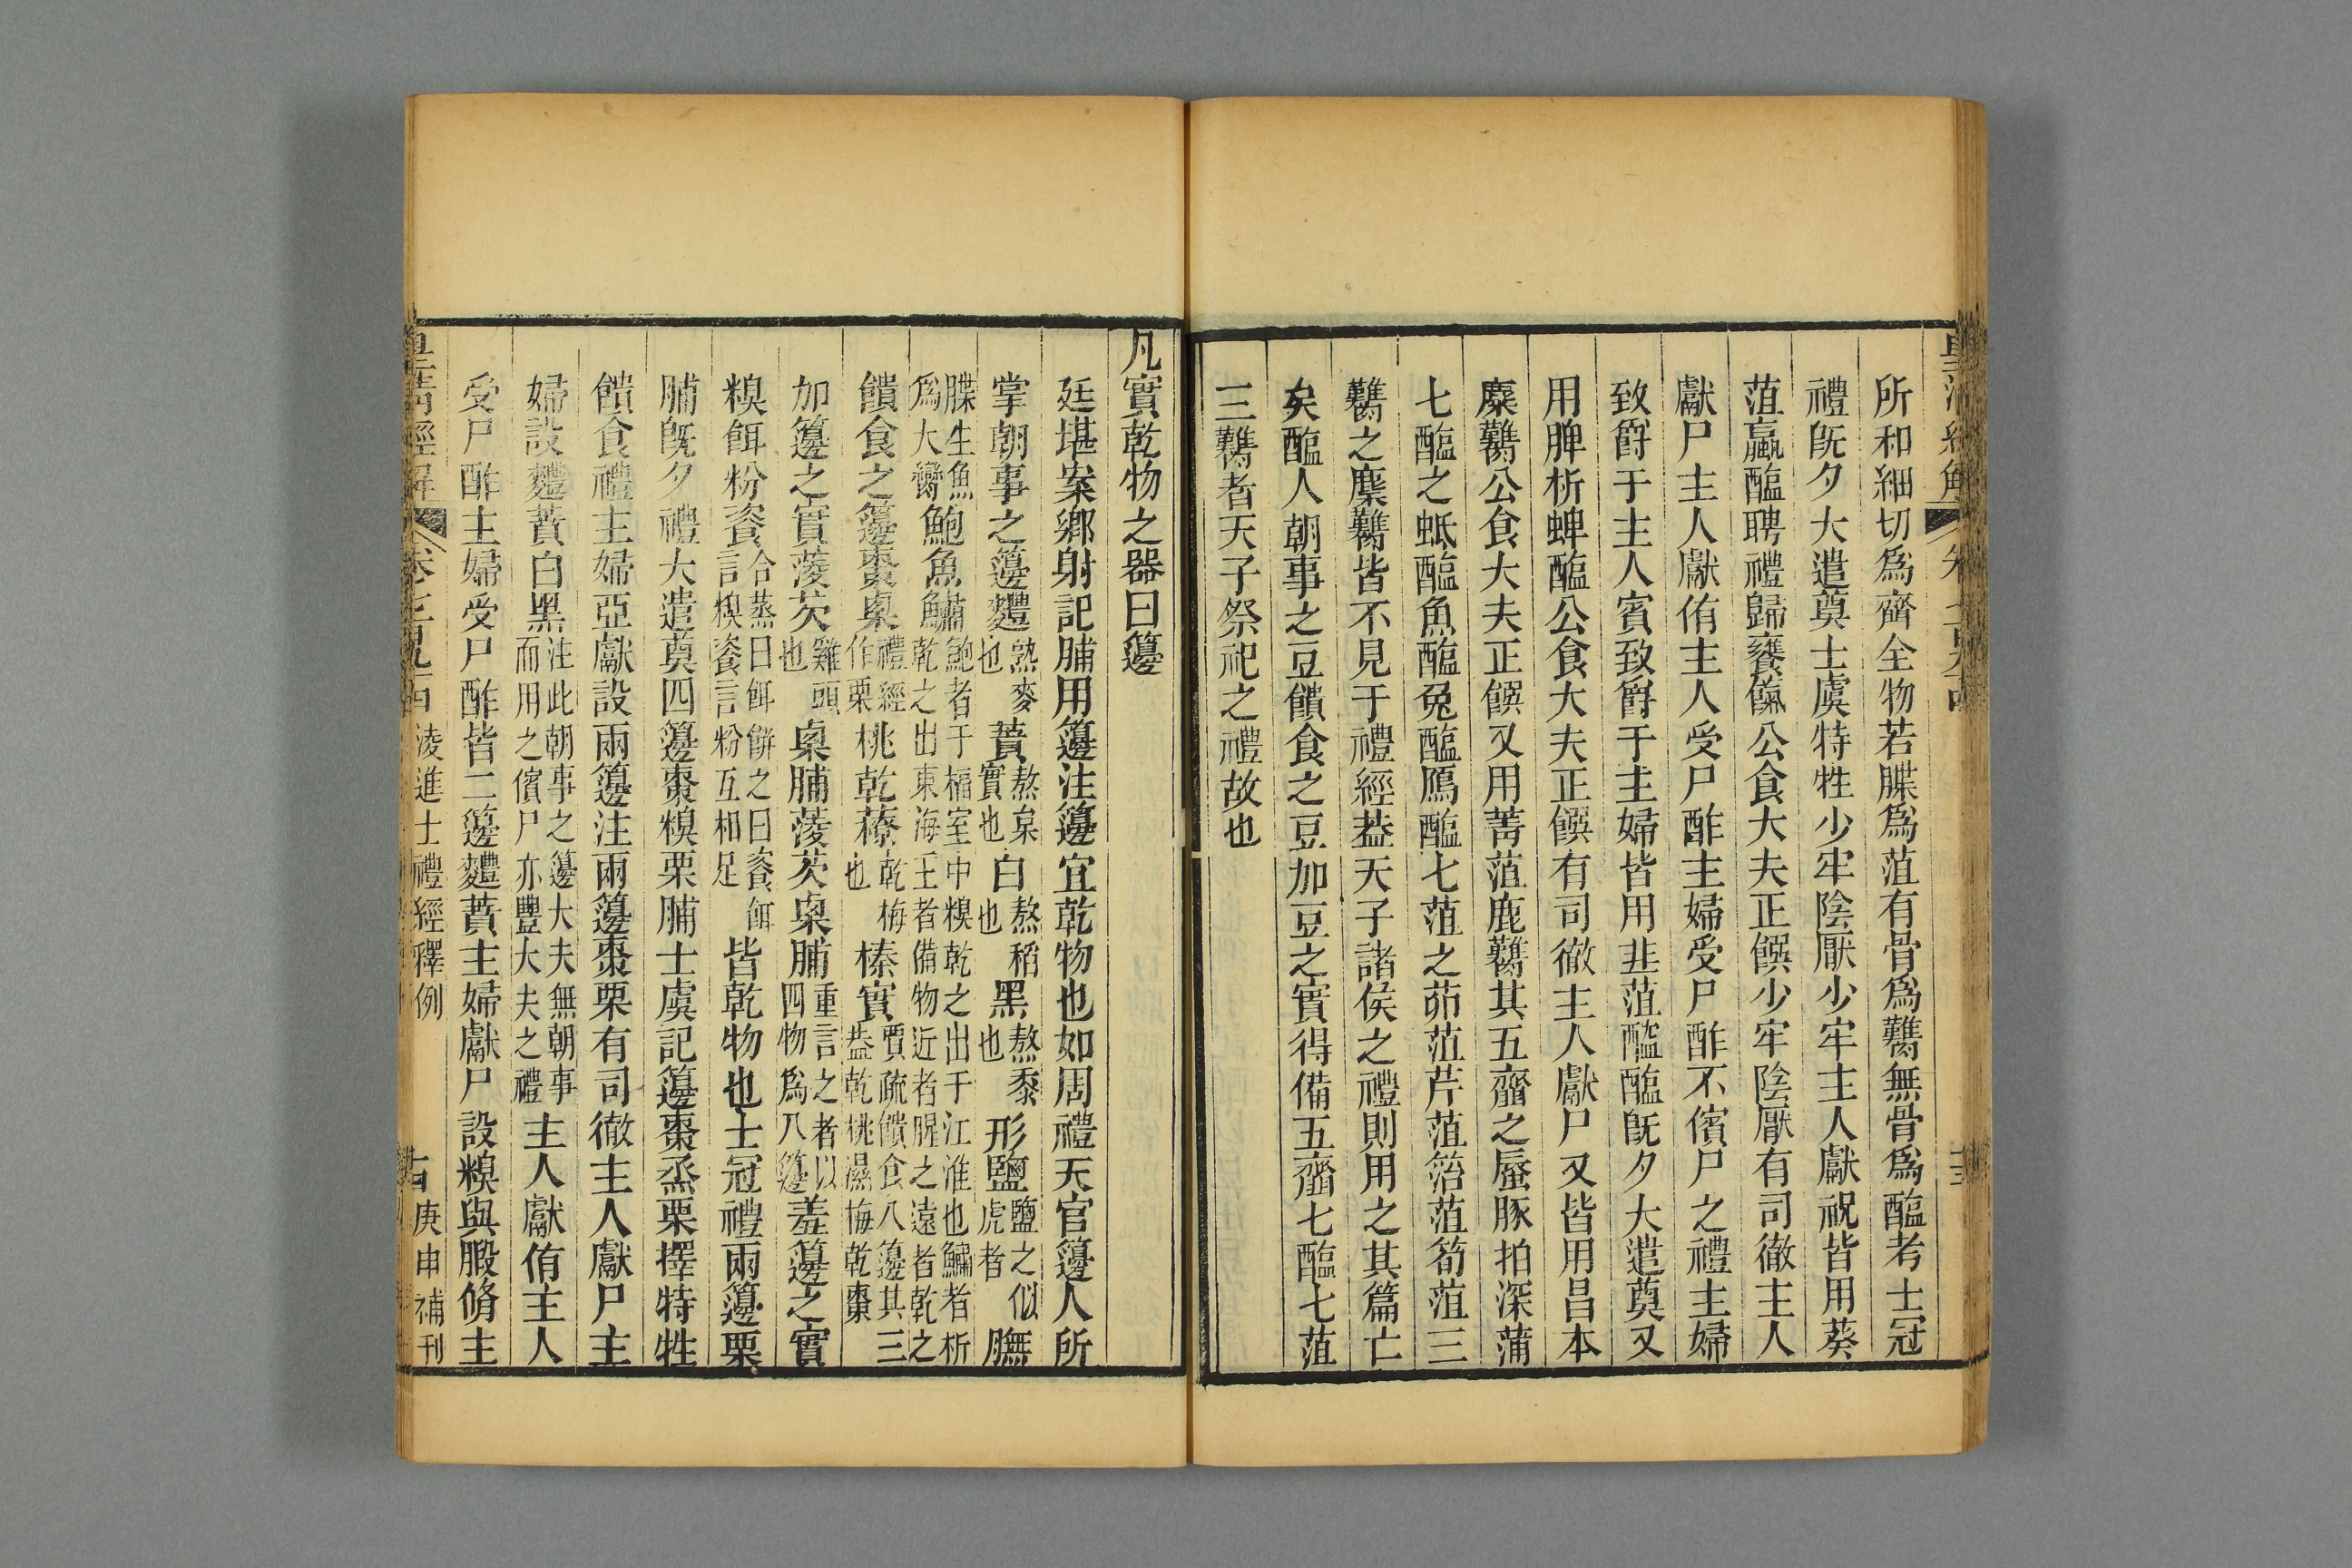 所和細切爲齊全物若䐑爲菹有骨爲臡無骨爲醢考士冠
禮旣夕大遣奠士虞特牲少牢陰厭少牢主人獻祝皆用葵
菹蠃醢聘禮歸饔餼公食大夫正饌少牢陰厭有司徹主人
獻尸主人獻侑主人受尸酢主婦受尸酢不儐尸之禮主婦
致爵于主人賓致爵于主婦皆用韭菹醓醢旣夕大遣奠又
用脾析蜱醢公食大夫正饌有司徹主人獻尸又皆用昌本
麋臡公食大夫正饌又用菁菹鹿臡其五齏之蜃豚拍深蒲
七醢之蚳醢魚醢兔醢鴈醢七菹之茆菹芹菹箈菹筍菹三
臡之麇臡皆不見于禮經葢天子諸侯之禮則用之其篇亡
矣醢人朝事之豆饋食之豆加豆之實得備五齏七醢七菹
三臡者天子祭祀之禮故也
凡實乾物之器曰籩
廷堪案鄉射記脯用籩注籩宜乾物也如周禮天官籩人所
掌朝事之籩麷熟麥也蕡熬枲實也白熬稻也黑熬黍也形鹽鹽之似虎者膴
䐑生魚爲大臠鮑魚鱐鮑者于楅室中糗乾之出于江淮也鱐者析乾之出東海王者備物近者腥之遠者乾之
饋食之籩棗㮚禮經作栗桃乾䕩乾梅也榛實賈疏饋食八籩其三葢乾桃濕梅乾棗
加籩之實蔆芡雞頭也㮚脯蔆芡㮚脯重言之者以四物爲八籩羞籩之實
糗餌粉餈合蒸曰餌餅之曰餈餌言糗餈言粉互相足皆乾物也士冠禮兩籩栗
脯旣夕禮大遣奠四籩棗糗栗脯士虞記籩棗烝栗擇特牲
饋食禮主婦亞獻設兩籩注兩籩棗栗有司徹主人獻尸主
婦設麷蕡白黑注此朝事之籩大夫無朝事而用之儐尸亦豐大夫之禮主人獻侑主人
受尸酢主婦受尸酢皆二籩麷蕡主婦獻尸設糗與腶脩主
皇淸經解 凌進士禮經釋例 古 庚申補刊